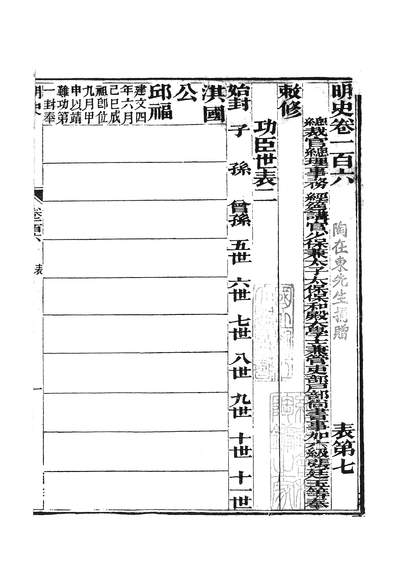 明史卷一百六　表第七
總裁官總理事務經筵講官少保兼太子太保保和殿大學士兼管吏部戶部尚書事加六級張廷玉等奉
敕修
功臣世表二
始封　子　孫　曾孫　五世　六世　七世　八世　九世　十世　十一世
淇國
公
邱福
建文四
年六月
己巳成
祖卽位
九月甲
申以靖
難功第
一封奉
明史　卷一百六　表　一
陶在東先生捐贈